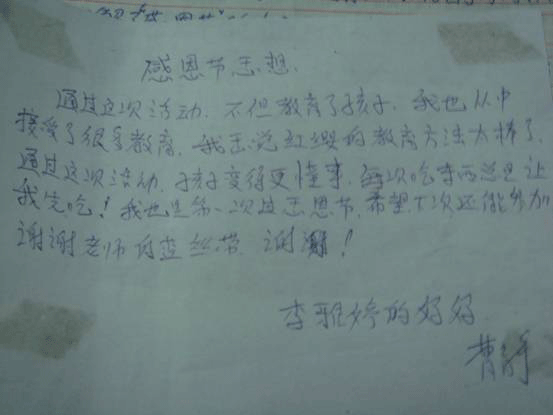 感恩节感想.
通过这次活动.不但教育了孩子.我也从中
接受了很多教育.我想说红缨的教育方法太棒了.
通过这次活动.孩子变得更懂事.每次吃东西总是让
我先吃!我也是第一次过感恩节.希望下次还能参加
谢谢老师的蓝丝带.谢谢!
李雅婷的妈妈
曹